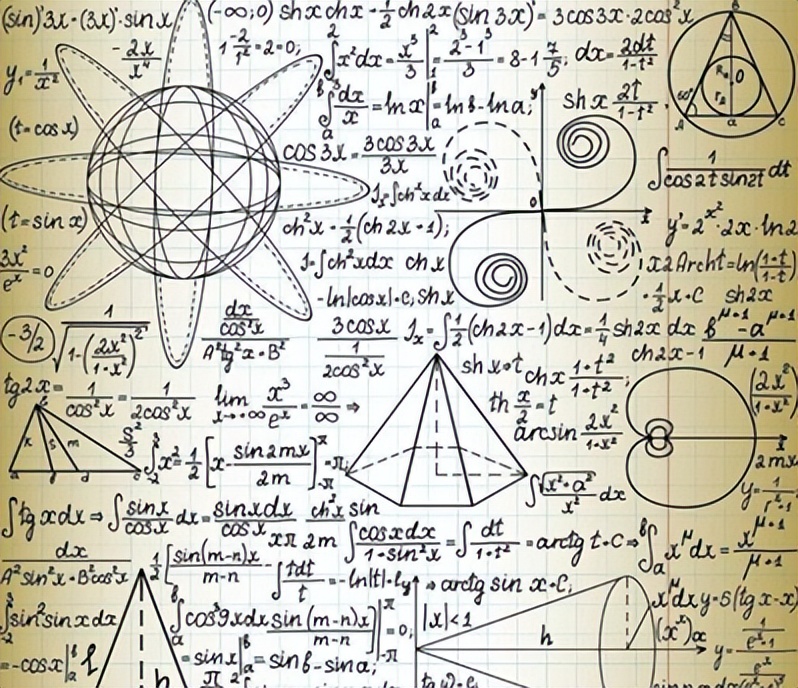 (sin)'3x·(3x)'·sin x
(-∞;0) sh x ch x = 1/2 ch 2x (sin 3x)' = 3cos3x·2cos²x
-2x/x⁴
1 -2/1² = 2 = 0;
∫₁² x²dx = x³/3 |₁² = 2³-1³/3 = 8-1 7/5;
dx = 2dt/1-t²
y₁ = 1/x²
∫ₐᵇ dx/x = ln x |ₐᵇ = ln b - ln a;
sh x 2t/1-t².
(t = cos x)
cos 3x = 3cos3x/3x
∫ 1/cos2t sin2t dt
(t = sin x)
ch²x = 1/2(ch 2x + 1);
y' = 2^x²·2x·ln2
3x²/eˣ = 0
J = ∫ch²x dx ch x
x2 Arch t = ln(1+t/1-t)
-ln|cos x| + c, sh x
1/2 x + C sh2x
-3/2
1/√1-(2x²/1+x²)²
dx/cos²x
A²tg²x + B²
3cos x
1/2cos²x
Jₓ = ∫ 1/2(ch 2x-1)dx = 1/4 sh 2x dx
b^μ+1 - a^μ+1/μ+1
ch 2x-1
tg 2x = 1/cos²x = 1/2cos²x
lim x→+∞ x³/eˣ = ∞/∞ ⇒
sh x = t
ch x 1+t²/1+t²;
th x/2 = t
arcsin 2x²/1+x²
(2x²/1+x²)
x² = 1/2[x - sin 2mx/2m]
∫ √x²+a²/x² dx
2mx
∫tg x dx ⇒ ∫ sin x/cos x dx = sin x dx/cos x
ch²x sin
xπ 2m
∫ cos x dx/1+sin²x = ∫ dt/1+t² = arctg t + C ⇒ ∫ₐᵇ x^μ dx = x^μ+1/μ+1
dx/A²sin²x + B²cos²x
1/2[sin(m-n)x/m-n
∫ tdt/t = -ln|t| +
⇒ arctg sin x + C;
∫sin²sin x dx
∫ₐᵇ cos³9x dx sin(m-n)x/m-n = 0;
|x| < 1
h
x^μ dx y = 5(tg x - x)
(xˣ)
= -cos x |ₐᵇ
= sin x |ₐᵇ = sin b - sin a;
h
y =